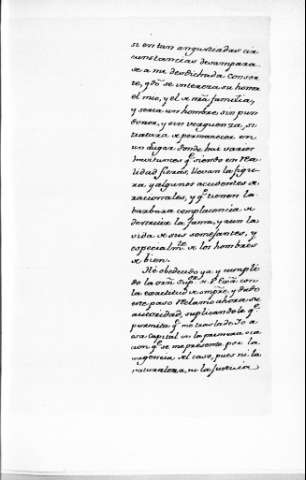 si en tan angustiadas cir
cunstancias desampara
se a mi desdichada consor
te, qdo se interesa su honor
el mio, y el de nra familia,
y seria un hombre sin pun
donor, y sin verguenza, si
tratara de permanecer en
un lugar donde hai varios
qe siendo en rea
lidad fieras, llevan la figu
ra, y algunos accidentes de
racionales, y qe tienen la
barbara complacencia de
destruir la fama, y aun la
vida de sus semejantes, y
especialmte de los hombres
de bien.
He obedecido ya y cumpli
do la orn Supor de V. Exa con
la exactitud de smpre, y dado
este paso reclamo ahora su
autoridad, suplicando le qe
permita qe me traslade a
esa capital en la primera oca
cion qe se me presente por la
urgencia del caso, pues ni la
naturaleza, ni la justicia